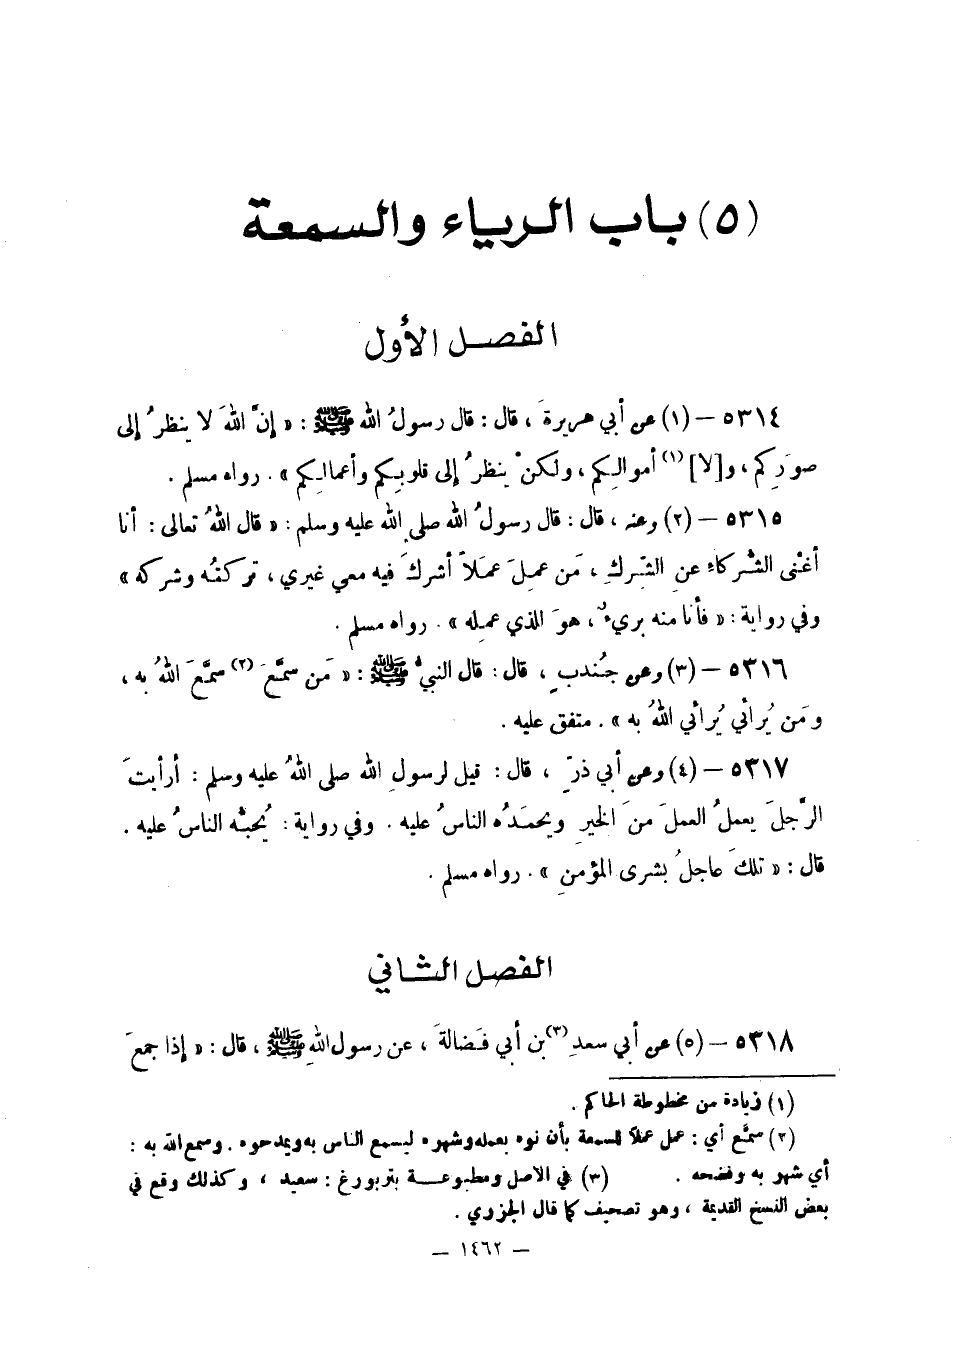 (٥) باب الرياء والسمعة
الفصل الأول
٥٣١٤ – (١) عن أبي هريرةَ ، قال : قال رسولُ الله ﷺ : « إِنَّ اللهَ لا ينظرُ إلى
صوَرِكم ، و[لا] (١) أموالِكم ، ولكنْ ينظرُ إلى قلوبِكم وأعمالِكم » . رواه مسلم .
٥٣١٥ – (٢) وعنه ، قال : قال رسولُ الله صلى الله عليه وسلم : « قال اللهُ تعالى : أنا
أغنى الشُّركاءِ عنِ الشِّركِ ، مَن عمِلَ عمَلاً أشركَ فيه معي غيري ، تركتُه وشركه »
وفي رواية : « فأنا منه بريءٌ ، هوَ الذي عمِله » . رواه مسلم .
٥٣١٦ – (٣) وعن جُندبٍ ، قال : قال النبيُّ ﷺ : « مَن سمَّعَ (٢) سمَّعَ اللهُ به ،
ومَن يُرائي يُرائي اللهُ به » . متفق عليه .
٥٣١٧ – (٤) وعن أبي ذرٍّ ، قال : قيل لرسولِ الله صلى اللهُ عليه وسلم : أرأيتَ
الرَّجلَ يعملُ العملَ منَ الخيرِ ويحمَدُه الناسُ عليه . وفي رواية : يُحبُّه الناسُ عليه .
قال : « تلكَ عاجلُ بشرى المؤمنِ » . رواه مسلم .
الفصل الثاني
٥٣١٨ – (٥) عن أبي سعدِ (٣) بن أبي فَضالةَ ، عن رسولِ اللهِ ﷺ ، قال : « إذا جمعَ
(١) زيادة من مخطوطة الحاكم .
(٢) سمَّع أي : عمل عملاً للسمعة بأن نوه بعمله وشهره ليسمع الناس به ويمدحوه . وسمع الله به :
أي شهر به وفضحه . (٣) في الاصل ومطبوعة بتربورغ : سعيد ، وكذلك وقع في
بعض النسخ القديمة ، وهو تصحيف كما قال الجزري .
– ١٤٦٢ –